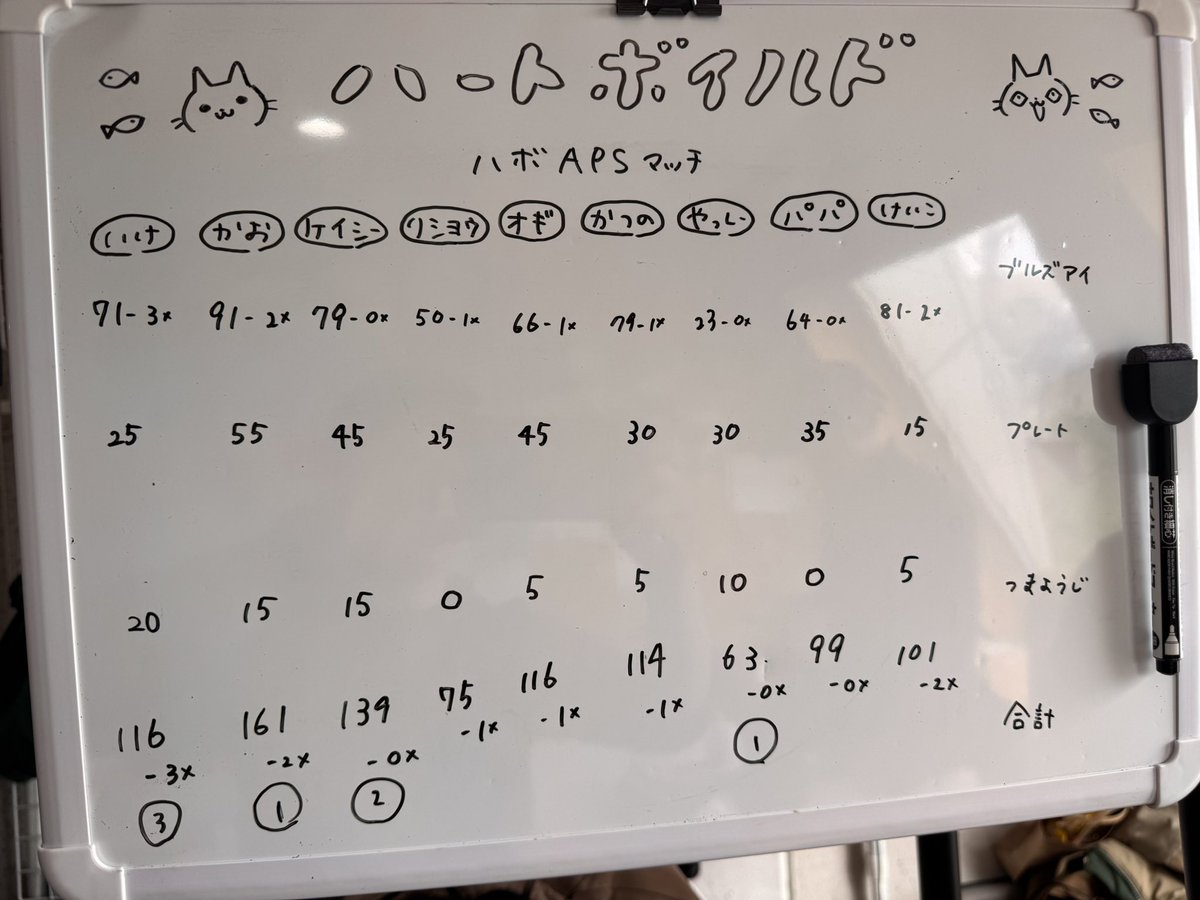 ハートボイルド
ハボ APS マッチ
いけ かお ケイシー リミヨウ オギ かつの やっしー パパ けいこ
ブルズアイ
71-3x 91-2x 79-0x 50-1x 66-1x 79-1x 23-0x 64-0x 81-2x
25 55 45 25 45 30 30 35 15 プレート
20 15 15 0 5 5 10 0 5 つまようじ
116 161 139 75 116 114 63 99 101 合計
-3x -2x -0x -1x -1x -1x -0x -0x -2x
3 1 2 1
消し付き極芯